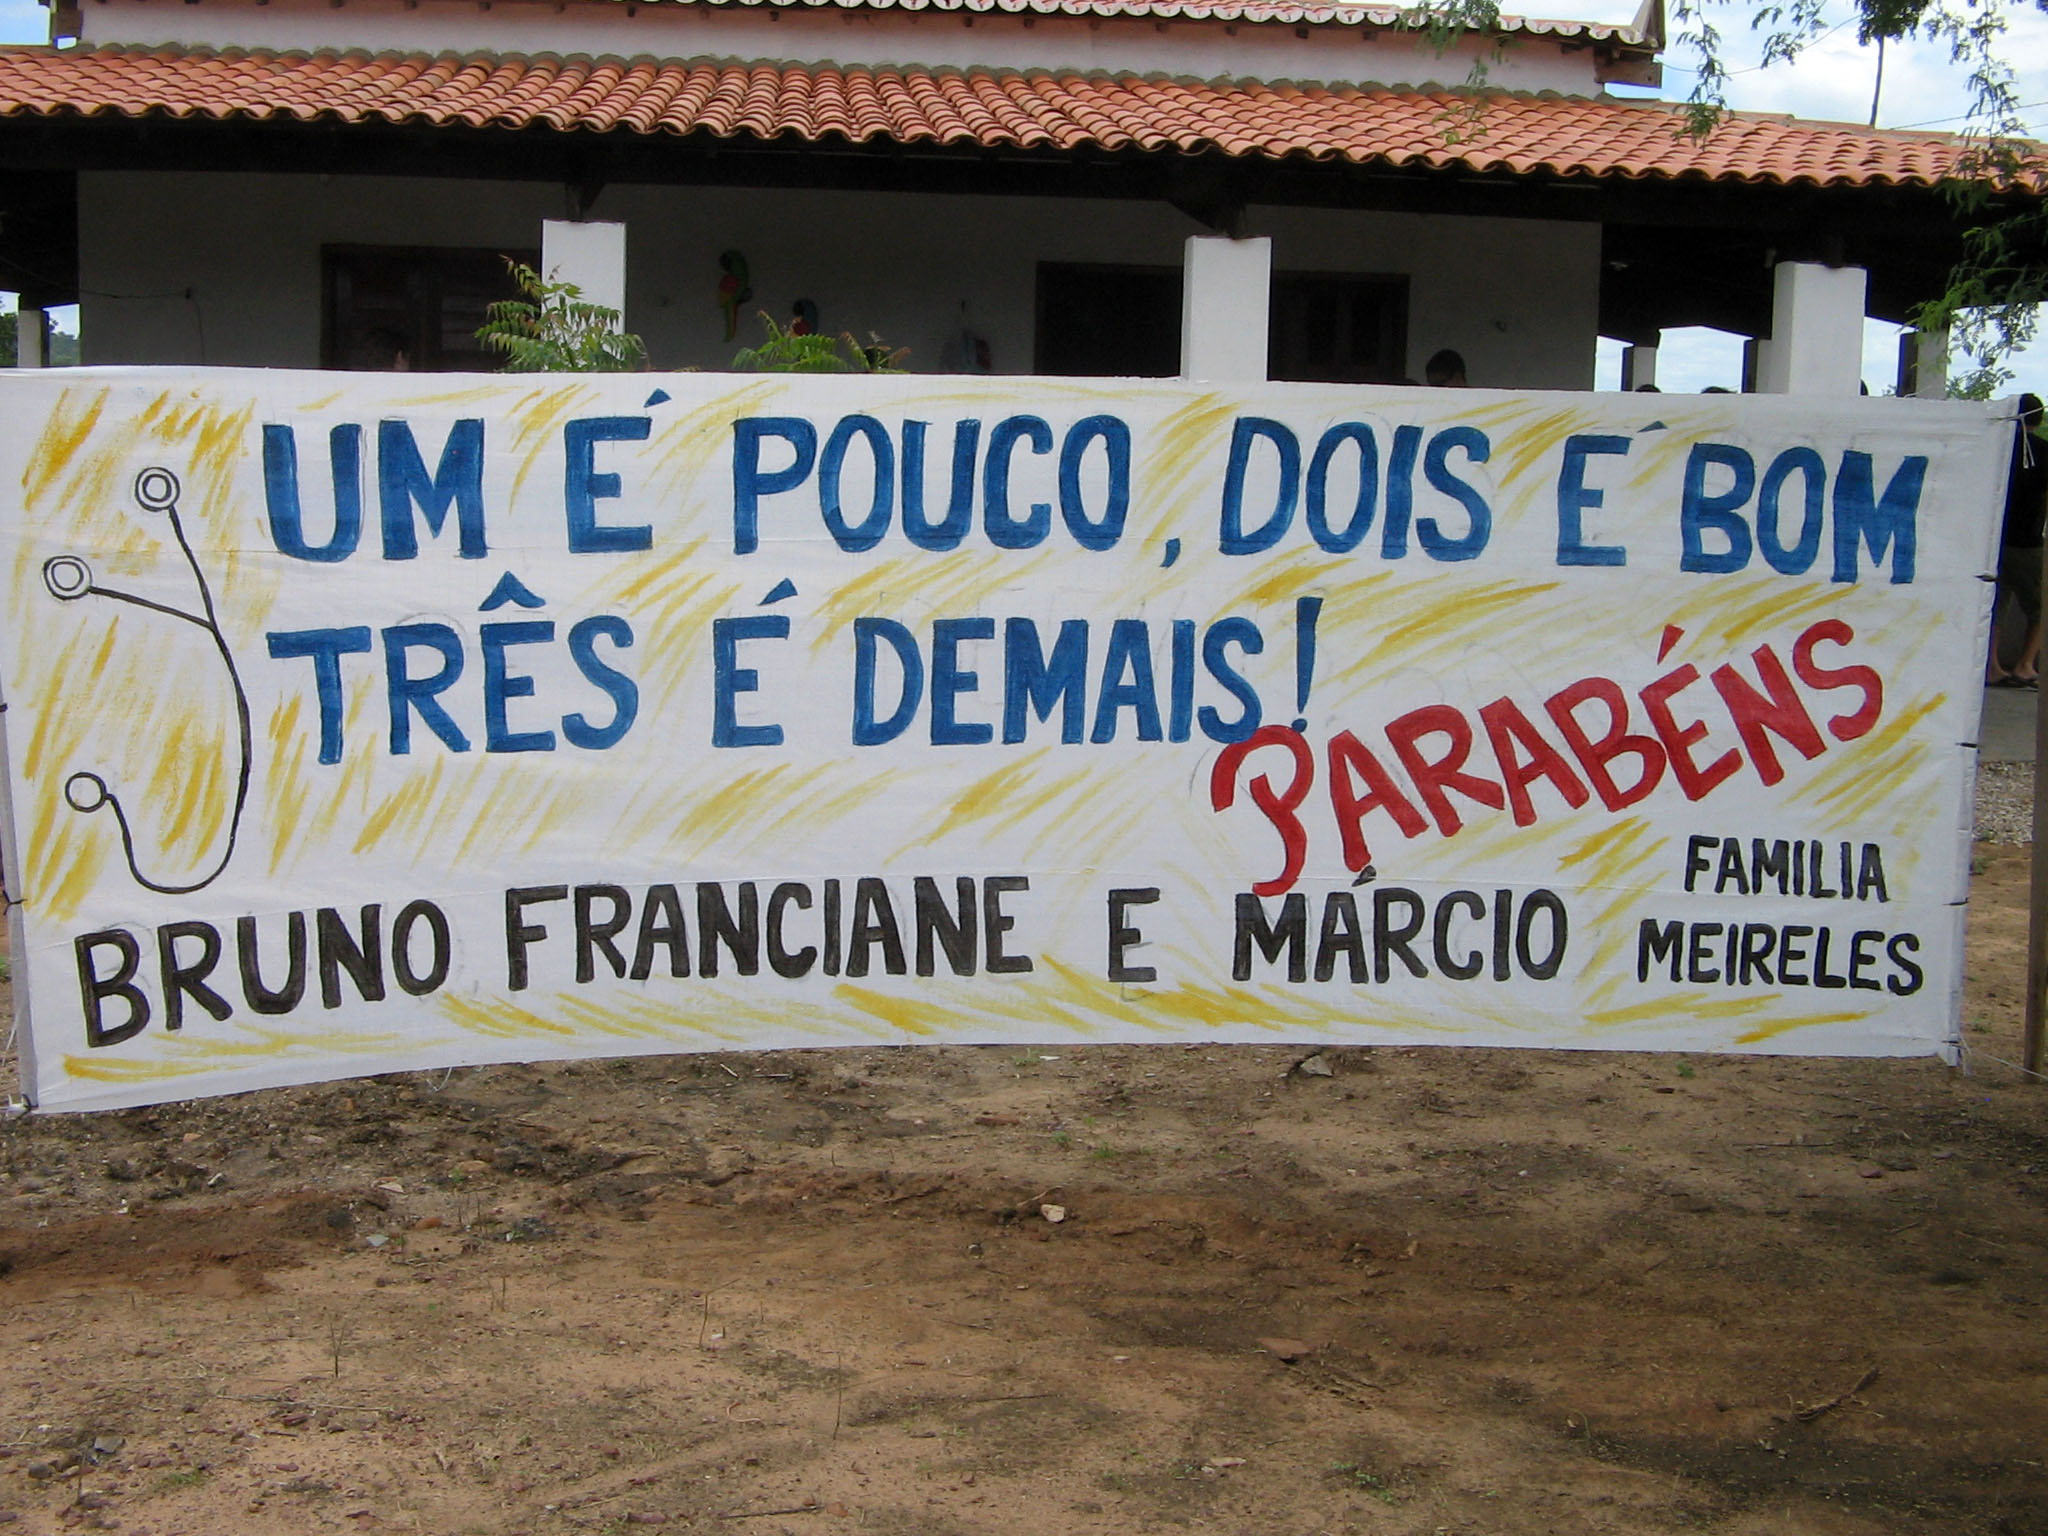 UM É POUCO, DOIS É BOM
TRÊS É DEMAIS!
PARABÉNS
BRUNO FRANCIANE E MÁRCIO
FAMILIA
MEIRELES